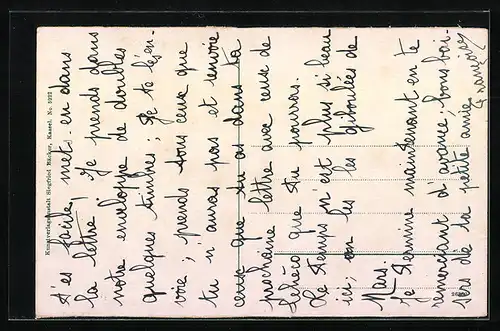 t'es facile, met-en dans
la lettre, Je prends dans
notre enveloppe de doubles
quelques timbres; Je te les en-
voie; prends tous ceux que
tu n'auras pas et renvoie
ceux que tu as dans ta
prochaine lettre avec ceux de
que tu pourras.
Le temps n'est plus si beau
ici, on les les giboulées de
Mars.
Je termine maintenant en te
remerciant d'avance; bons bai-
sers de ta petite amie
Françoise
Kunstverlagsanstalt Siegfried Bücker, Kassel, No. 2322